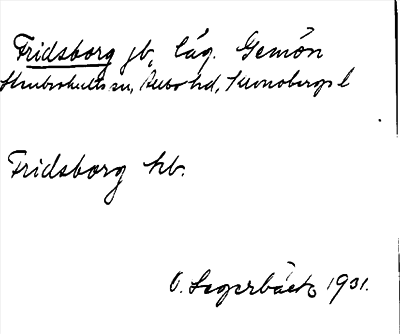 Fridsborg jb, läg. Gemön
Stenbrohults sn, Allbo hd, Kronobergs l
Fridsborg hb.
O. Lagerbäck 1931.